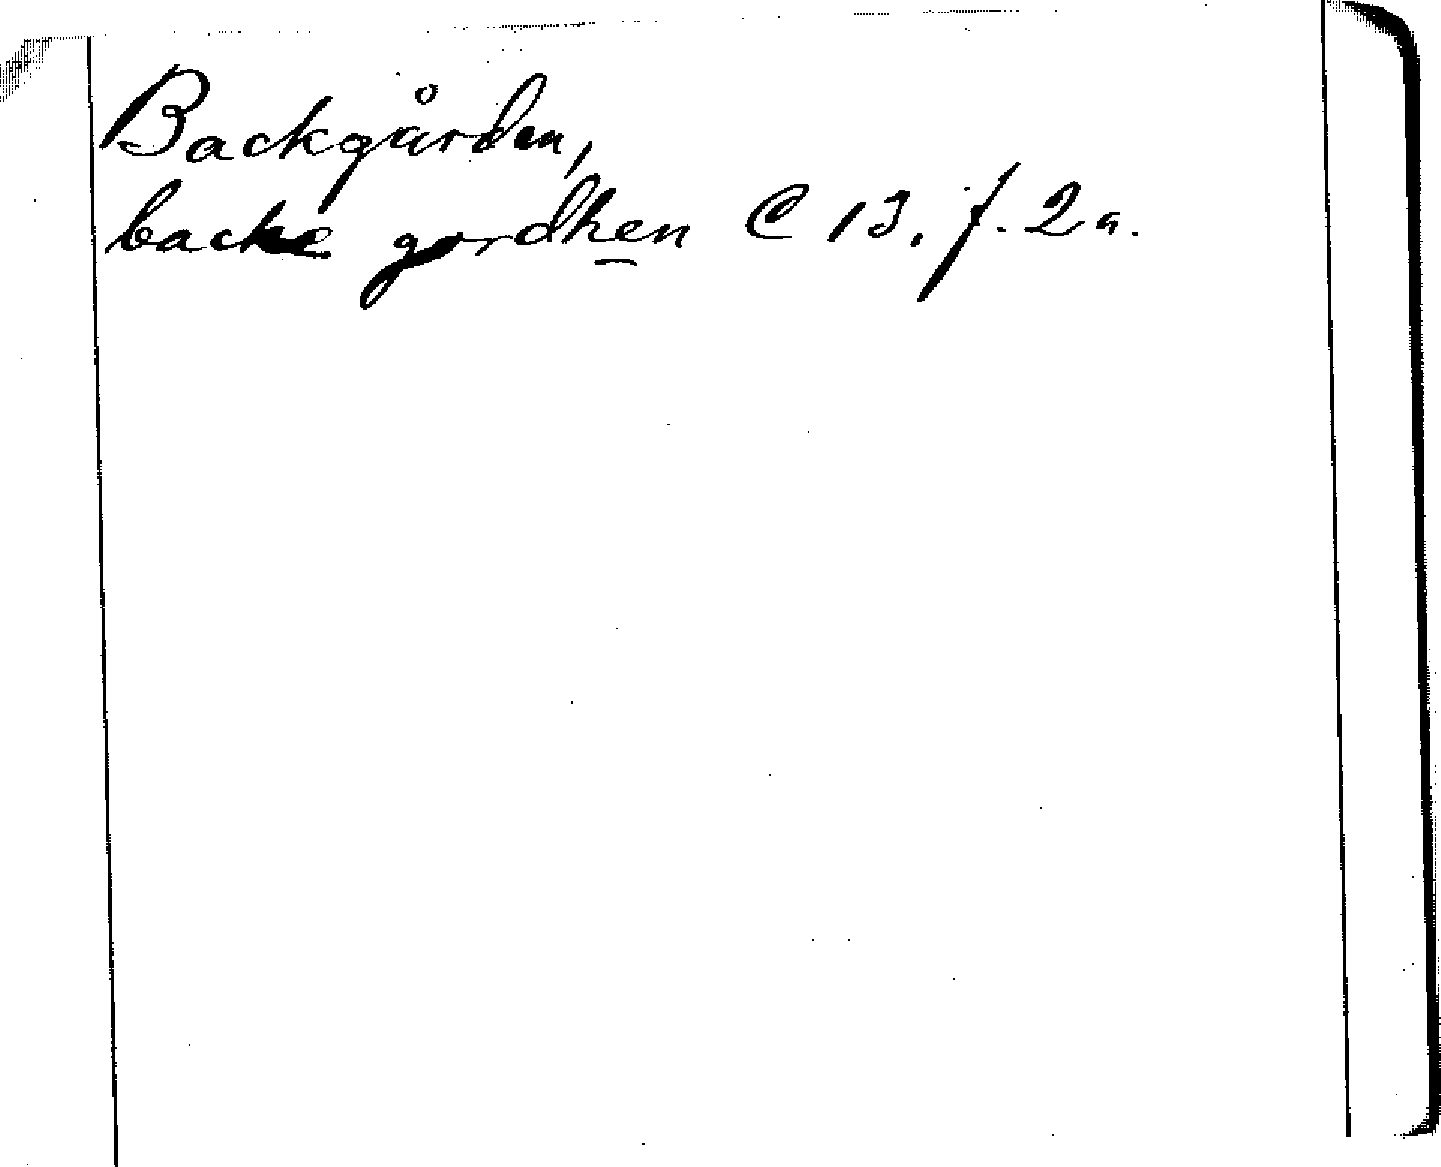 Backgården,
backe gordhen C 13. f. 2a.